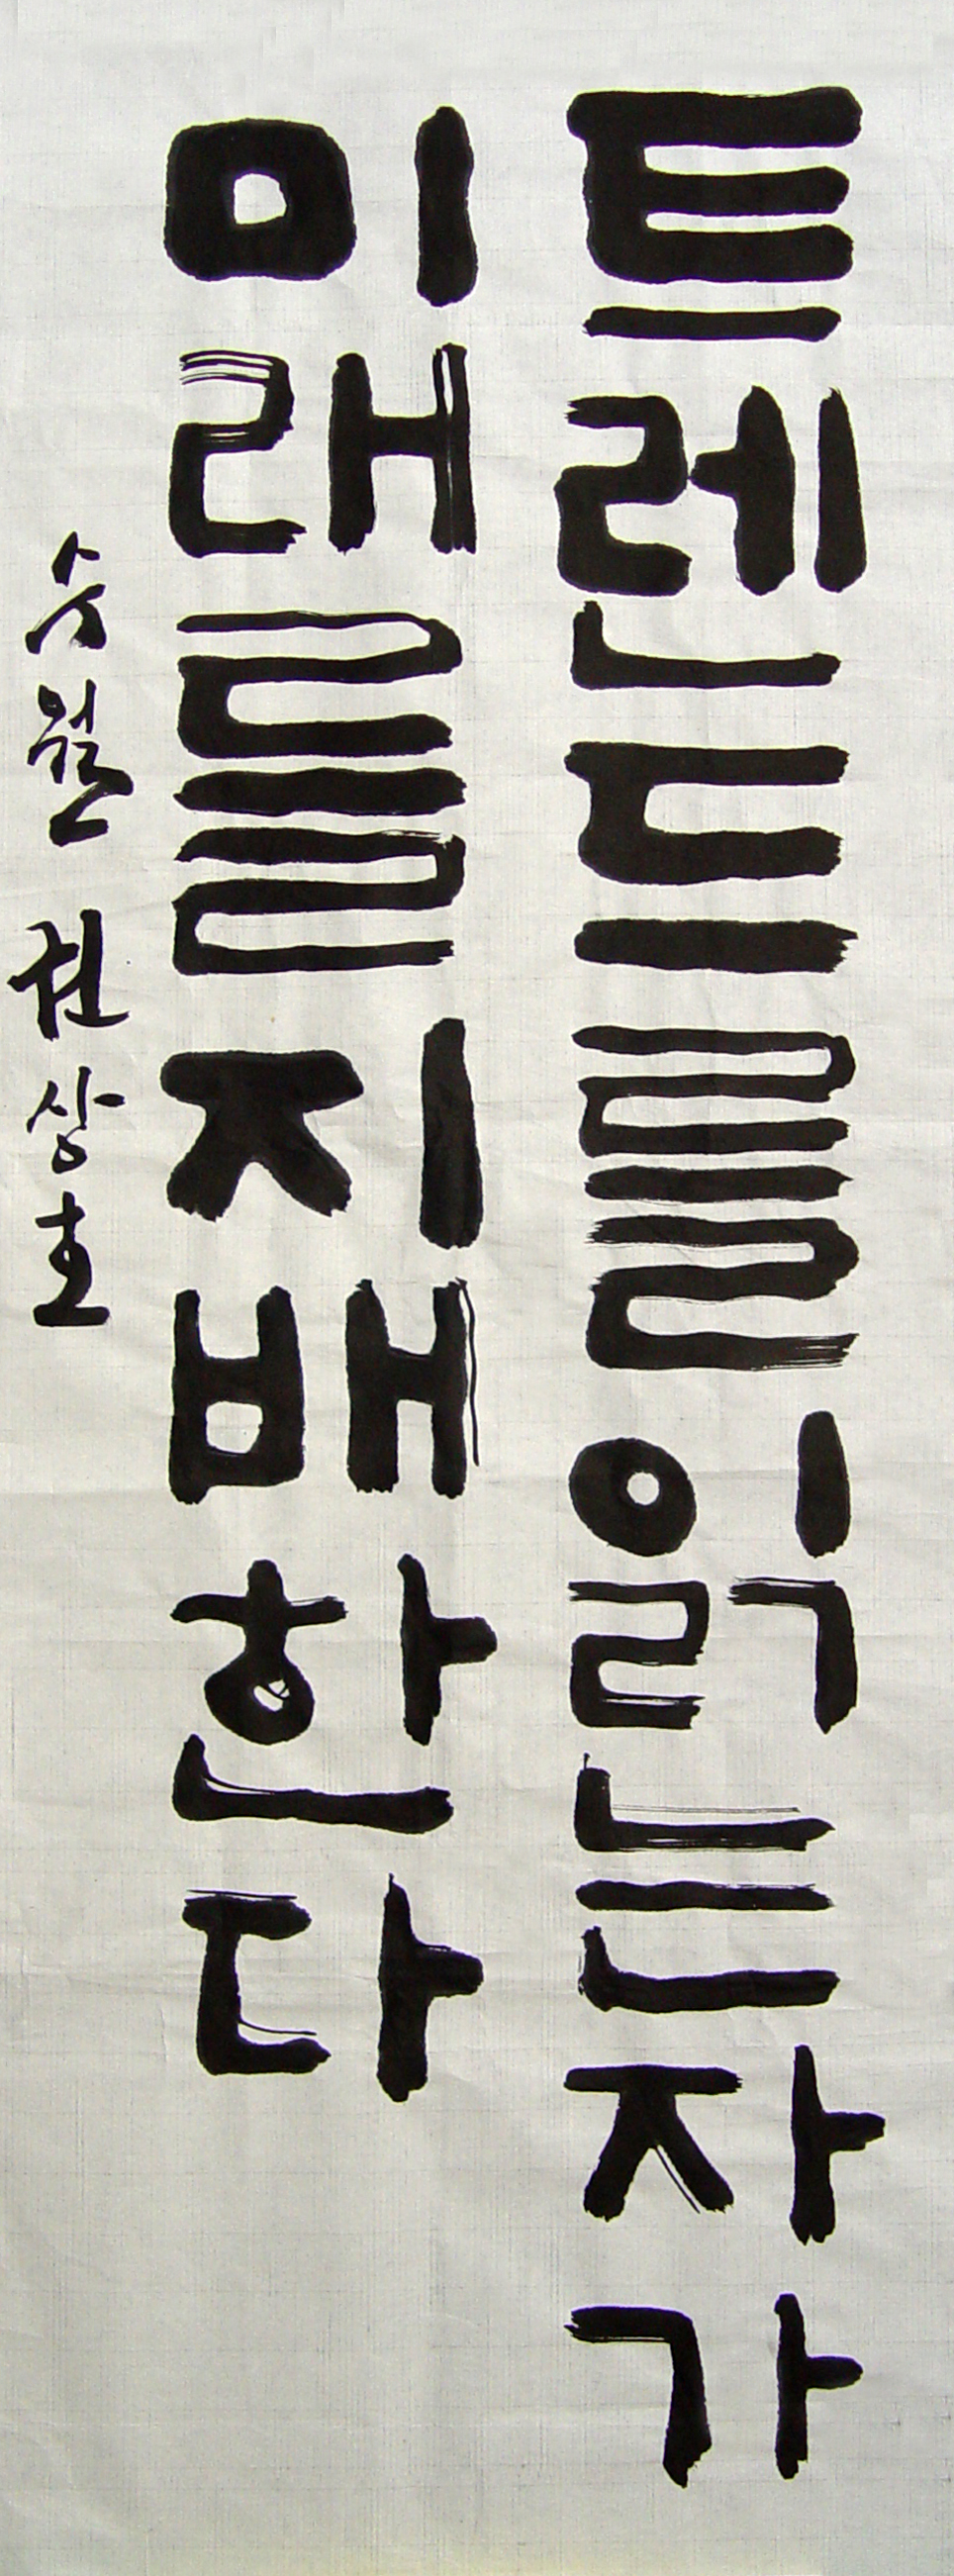 트렌드를읽는자가
미래를지배한다
수월 권상호